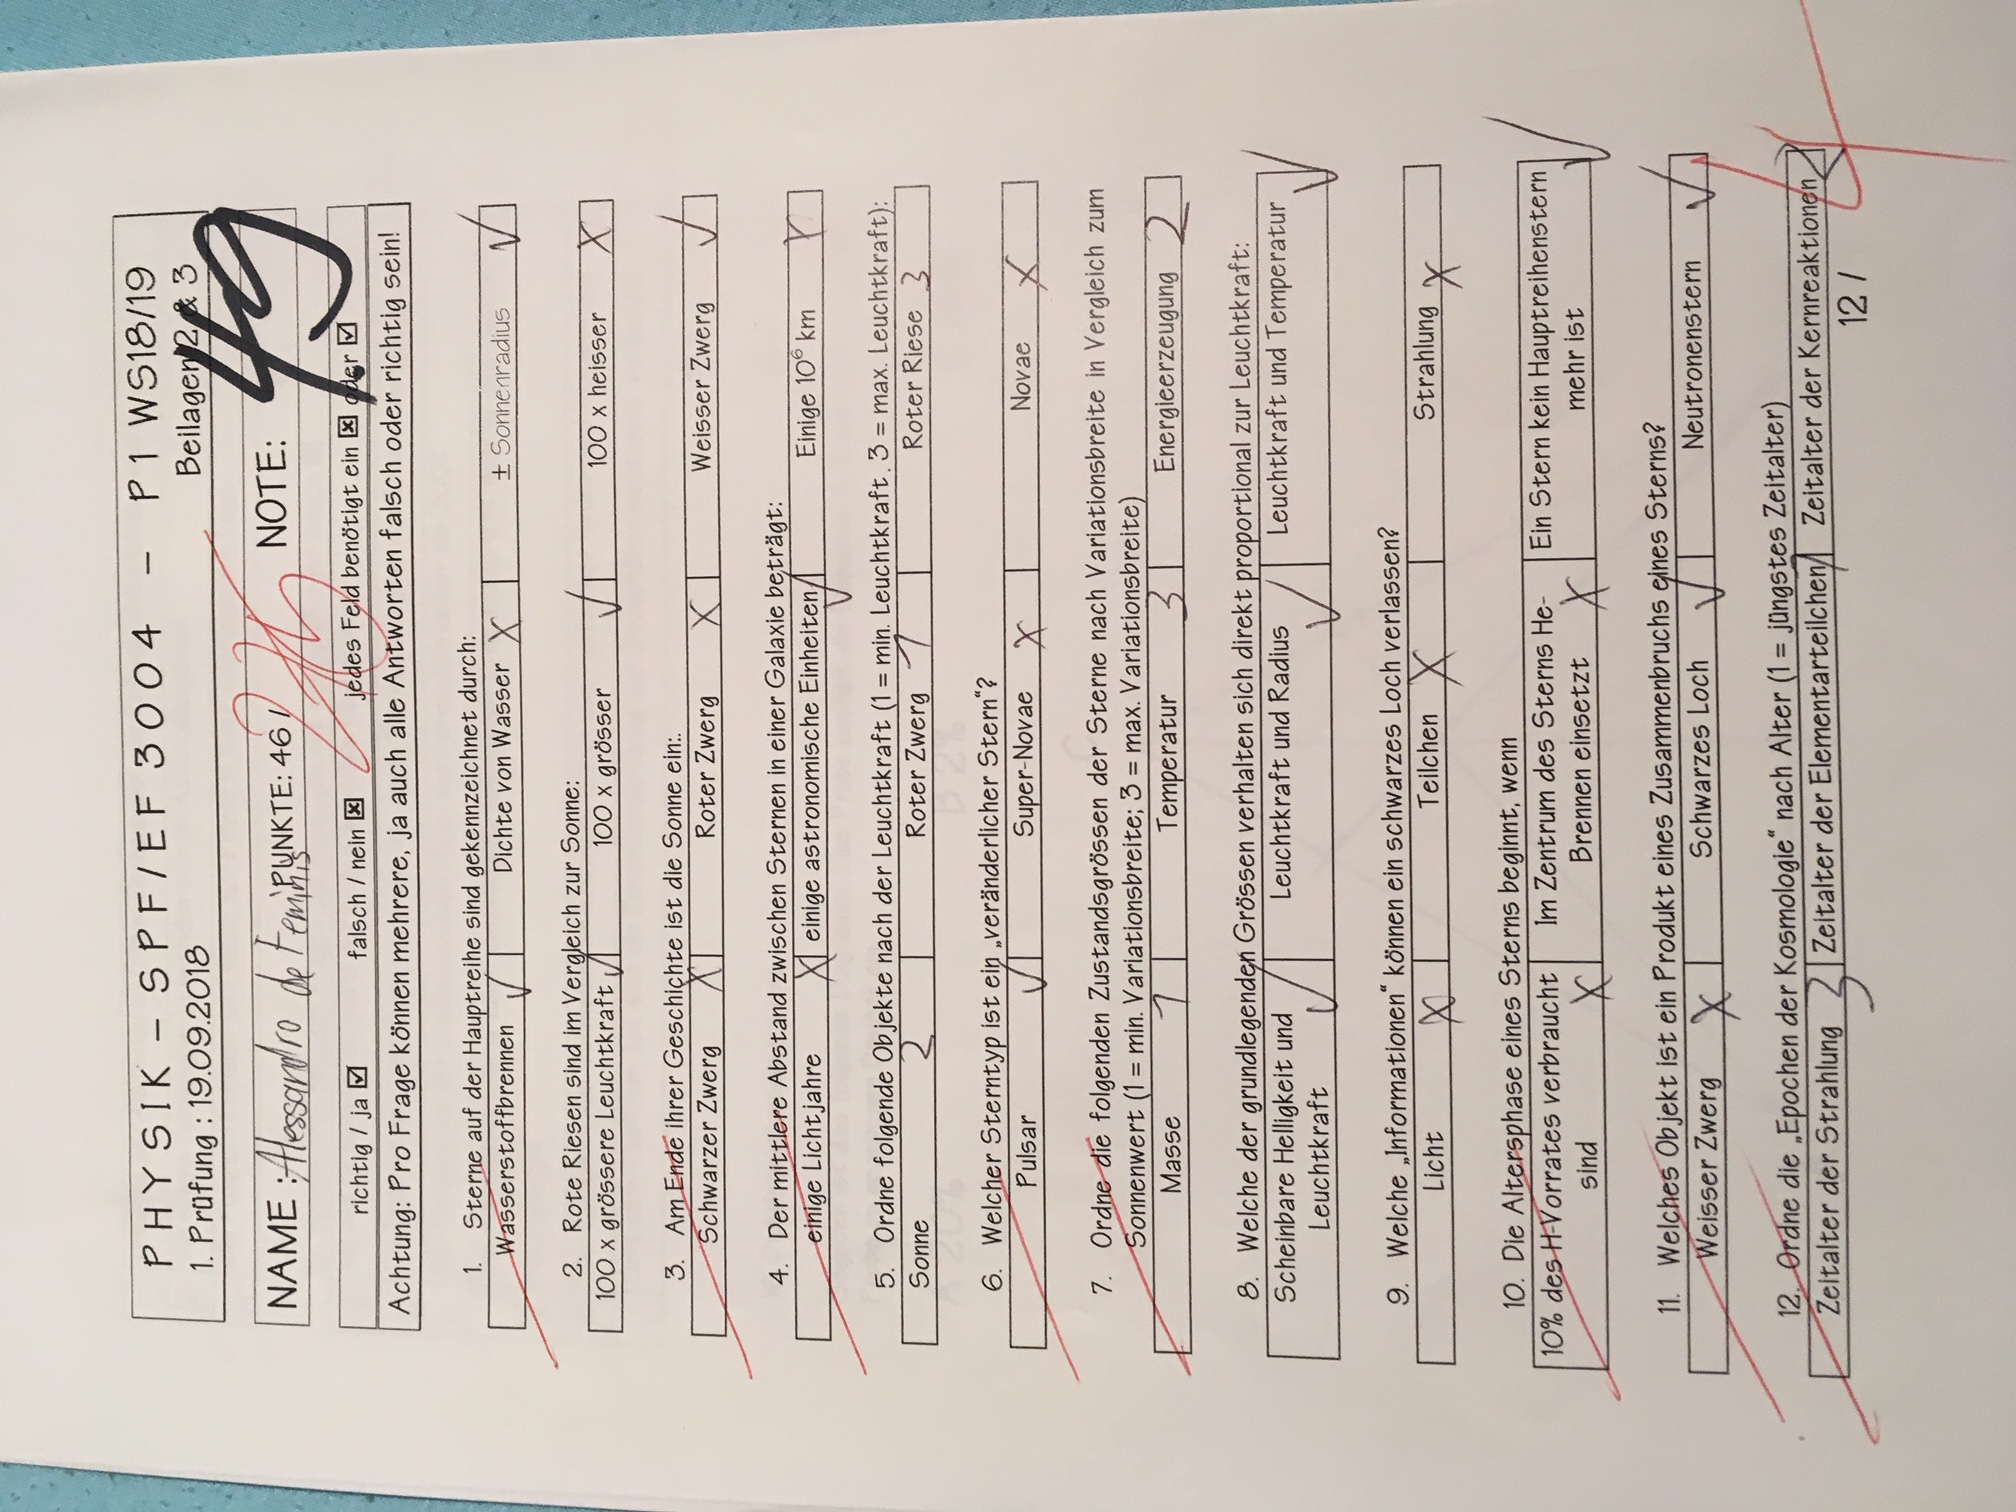 PHYSIK – SPF/EF 3004 – P1 WS18/19
1. Prüfung : 19.09.2018 Beilagen 2 & 3
NAME : Alessandro de Feminis PUNKTE: 46 / NOTE: 4.9
richtig / ja ☑ falsch / nein ☒ jedes Feld benötigt ein ☒ oder ☑
Achtung: Pro Frage können mehrere, ja auch alle Antworten falsch oder richtig sein!
1. Sterne auf der Hauptreihe sind gekennzeichnet durch:
Wasserstoffbrennen ✓ Dichte von Wasser X ± Sonnenradius ✓
2. Rote Riesen sind im Vergleich zur Sonne:
100 x grössere Leuchtkraft ✓ 100 x grösser ✓ 100 x heisser X
3. Am Ende ihrer Geschichte ist die Sonne ein:.
Schwarzer Zwerg X Roter Zwerg X Weisser Zwerg ✓
4. Der mittlere Abstand zwischen Sternen in einer Galaxie beträgt:
einige Lichtjahre X einige astronomische Einheiten ✓ Einige 10⁶ km X
5. Ordne folgende Objekte nach der Leuchtkraft (1 = min. Leuchtkraft, 3 = max. Leuchtkraft):
Sonne 2 Roter Zwerg 1 Roter Riese 3
6. Welcher Sterntyp ist ein „veränderlicher Stern“?
Pulsar ✓ Super-Novae X Novae X
7. Ordne die folgenden Zustandsgrössen der Sterne nach Variationsbreite in Vergleich zum
Sonnenwert (1 = min. Variationsbreite; 3 = max. Variationsbreite)
Masse 1 Temperatur 3 Energieerzeugung 2
8. Welche der grundlegenden Grössen verhalten sich direkt proportional zur Leuchtkraft:
Scheinbare Helligkeit und Leuchtkraft und Radius ✓ Leuchtkraft und Temperatur ✓
Leuchtkraft ✓
9. Welche „Informationen“ können ein schwarzes Loch verlassen?
Licht X Teilchen X Strahlung X
10. Die Altersphase eines Sterns beginnt, wenn
10% des H-Vorrates verbraucht Im Zentrum des Sterns He- Ein Stern kein Hauptreihenstern
sind X Brennen einsetzt X mehr ist ✓
11. Welches Objekt ist ein Produkt eines Zusammenbruchs eines Sterns?
Weisser Zwerg X Schwarzes Loch ✓ Neutronenstern ✓
12. Ordne die „Epochen der Kosmologie“ nach Alter (1 = jüngstes Zeitalter)
Zeitalter der Strahlung 3 Zeitalter der Elementarteilchen 1 Zeitalter der Kernreaktionen 2
12 / 4